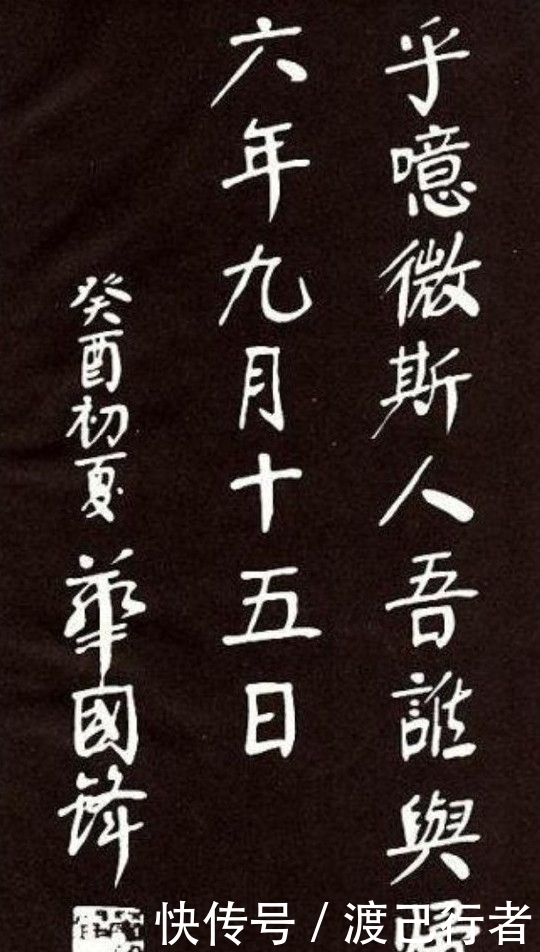 乎噫微斯人吾誰與歸
六年九月十五日
癸酉初夏 華國鋒
快传号 / 渡己行者